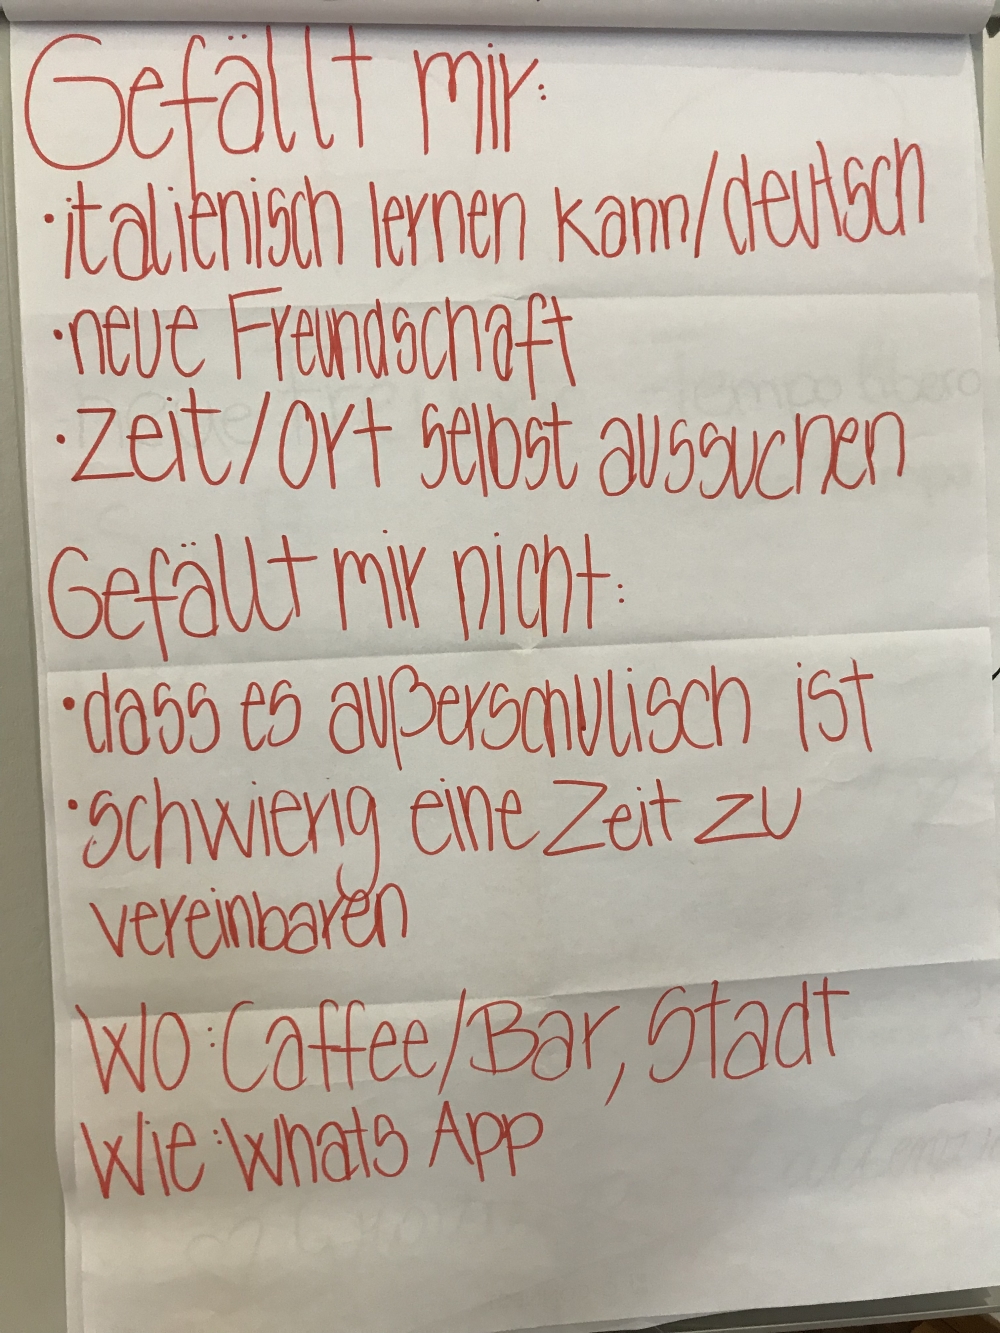 Gefällt mir:
• italienisch lernen kann/deutsch
• neue Freundschaft
• Zeit/Ort selbst aussuchen
Gefällt mir nicht:
• dass es außerschulisch ist
• schwierig eine Zeit zu
vereinbaren
Wo: Caffee/Bar, Stadt
Wie: Whats App